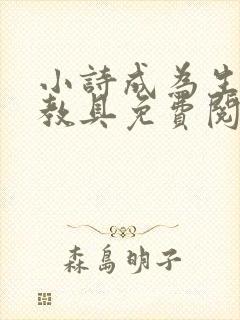 小詩成為生
教具免費閱
森島明子